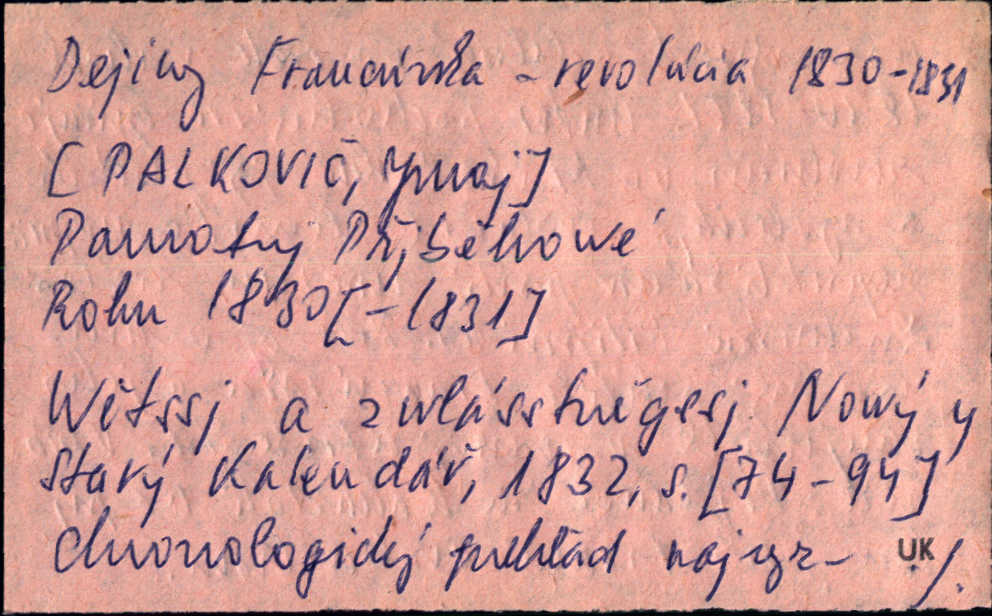 Dejiny Francúzska - revolúcia 1830-1831
[PALKOVIČ, Juraj]
Pamotny Přjběhowé
Roku 1830[-1831]
Wětssj a zwlásstněgssj Nowý y
Starý Kalendář, 1832, s. [74-94]
Chronologický prehľad najvýz-
UK /.